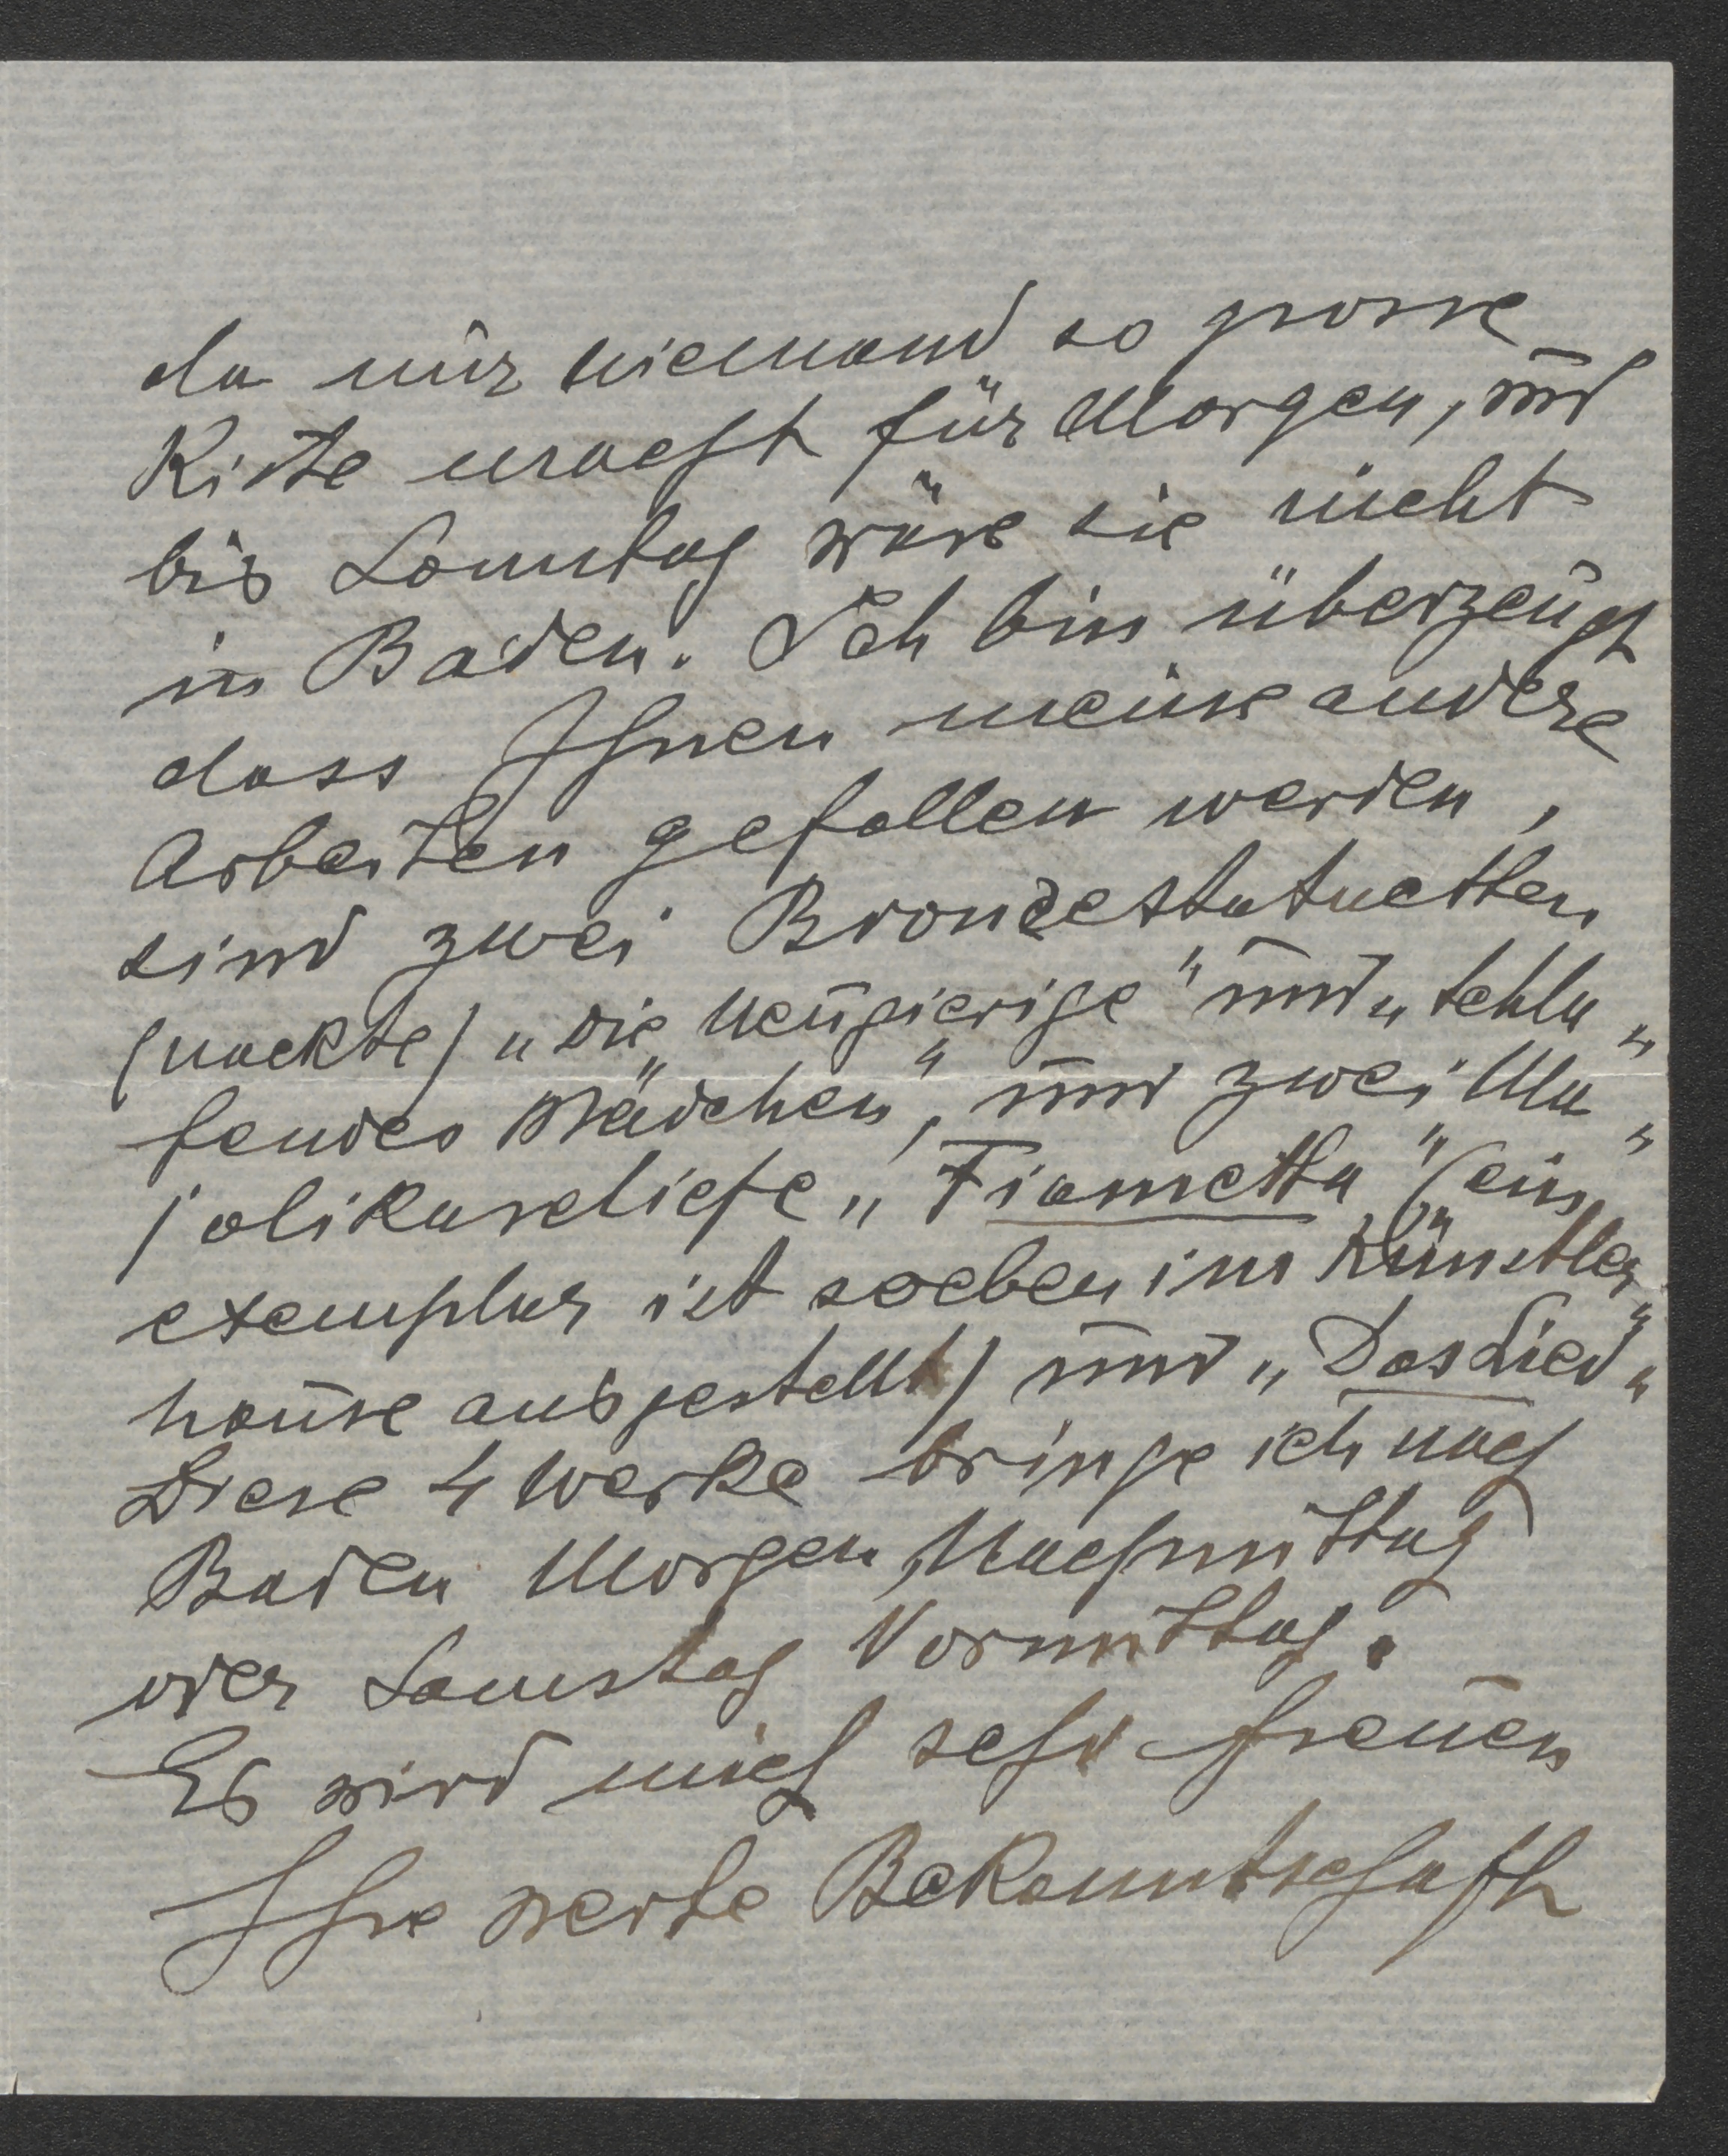 da mir niemand so grosse
Kiste macht für Morgen, und
bis Sonntag wäre sie nicht
in Baden. Ich bin überzeugt
dass Ihnen meine andere
Arbeiten gefallen werden,
sind zwei Broncestatuetten
(nackte) „die Neugierige" und „schla„
fendes Mädchen", und zwei Ma„
jolikareliefe „Fiametta" (ein
exemplar ist soeben im Künstler„
hause ausgestellt) und „Das Lied"
Diese 4 Werke bringe ich nach
Baden Morgen Nachmittag
oder Samstag Vormittag.
Es wird mich sehr freuen
Ihre werte Bekanntschaft